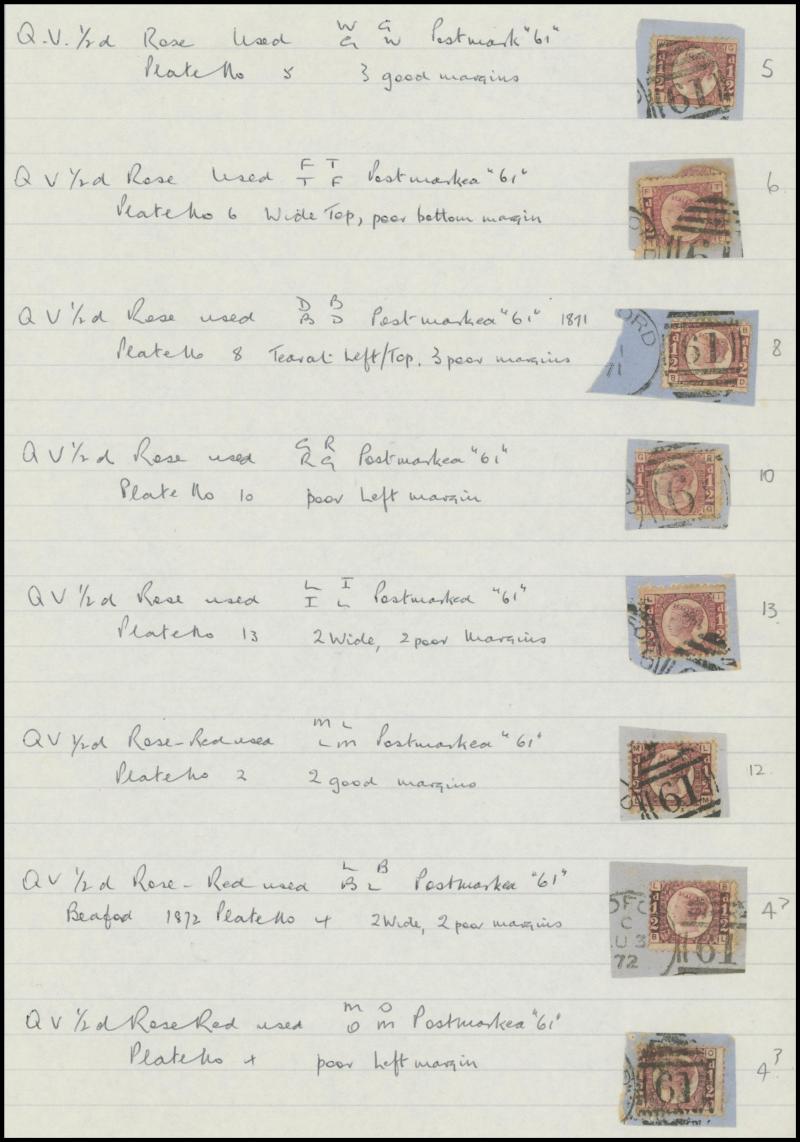 Q.V. 1/2 d Rose Used W G Postmark "61"
G W
Plate No 5 3 good margins 5
Q V 1/2 d Rose Used F T Postmarked "61"
T F
Plate No 6 Wide Top, poor bottom margin 6
Q V 1/2 d Rose used D B Postmarked "61" 1871
B D
Plate No 8 Tear at Left/Top, 3 poor margins 8
Q V 1/2 d Rose used G R Postmarked "61"
R G
Plate No 10 poor Left margin 10
Q V 1/2 d Rose used L I Postmarked "61"
I L
Plate No 13 2 Wide, 2 poor Margins 13
Q V 1/2 d Rose-Red used M L Postmarked "61"
L M
Plate No 2 2 good margins 12
Q V 1/2 d Rose-Red used L B Postmarked "61"
B L
Beaford 1872 Plate No 4 2 Wide, 2 poor margins 4?
Q V 1/2 d Rose Red used M O Postmarked "61"
O M
Plate No 4 poor Left margin 4?
61
ORD
1
71
61
61
OFO
C
U 3
72
61
61